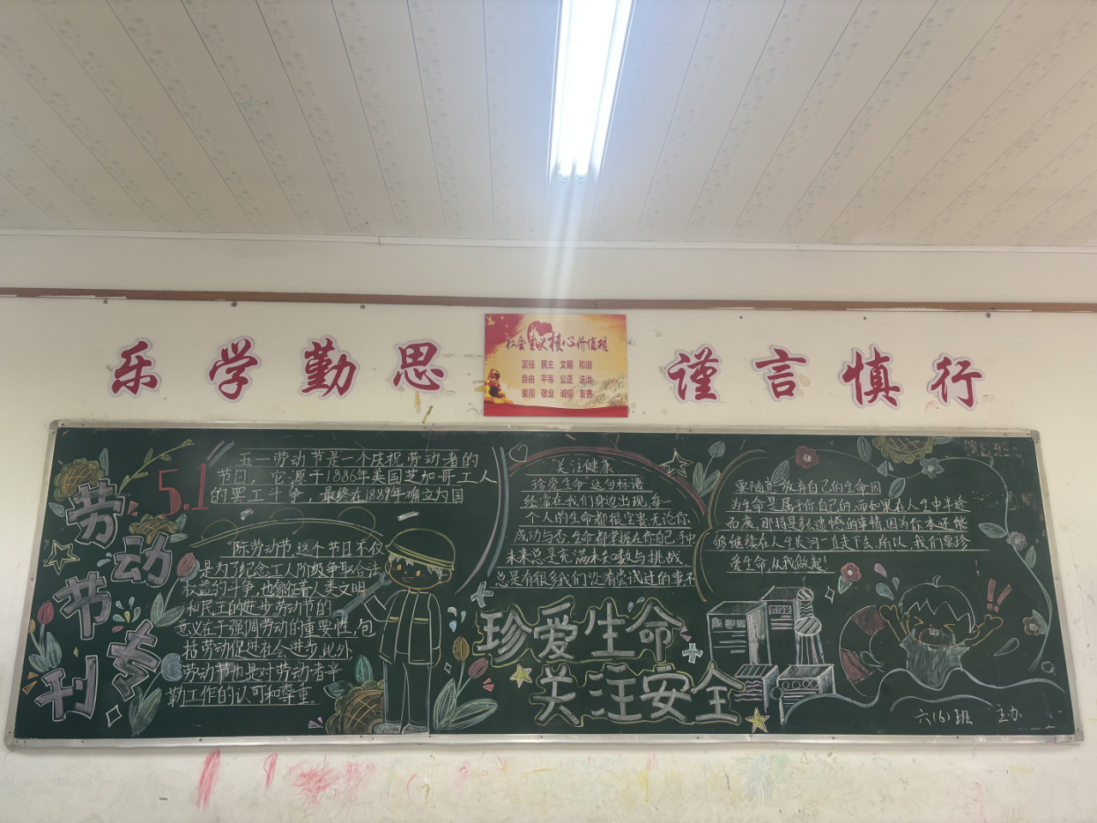 乐学勤思
社会主义核心价值观
富强 民主 文明 和谐
自由 平等 公正 法治
爱国 敬业 诚信 友善
谨言慎行
劳动节专刊
5.1
五一劳动节是一个庆祝劳动者的
节日,它源于1886年美国芝加哥工人
的罢工斗争,最终在1889年确立为国
际劳动节这个节日不仅
是为了纪念工人阶级争取合法
权益的斗争,也象征着人类文明
和民主的进步劳动节的
意义在于强调劳动的重要性,包
括劳动促进社会进步此外
劳动节也是对劳动者辛
勤工作的认可和尊重.
关注健康
珍爱生命这句标语
经常在我们身边出现,每一
个人的生命都很宝贵无论你
成功与否生命都掌握在你自己手中
未来总是充满未知数与挑战
总是有很多我们没有尝试过的事不
要随意放弃自己的生命因
为生命是属于你自己的,而如果在人生中半途
而废,那将是多么遗憾的事情,因为你本还能
够继续在人生长河一直走下去.所以,我们要珍
爱生命从我做起!
珍爱生命
关注安全
!!
六(6)班 主办